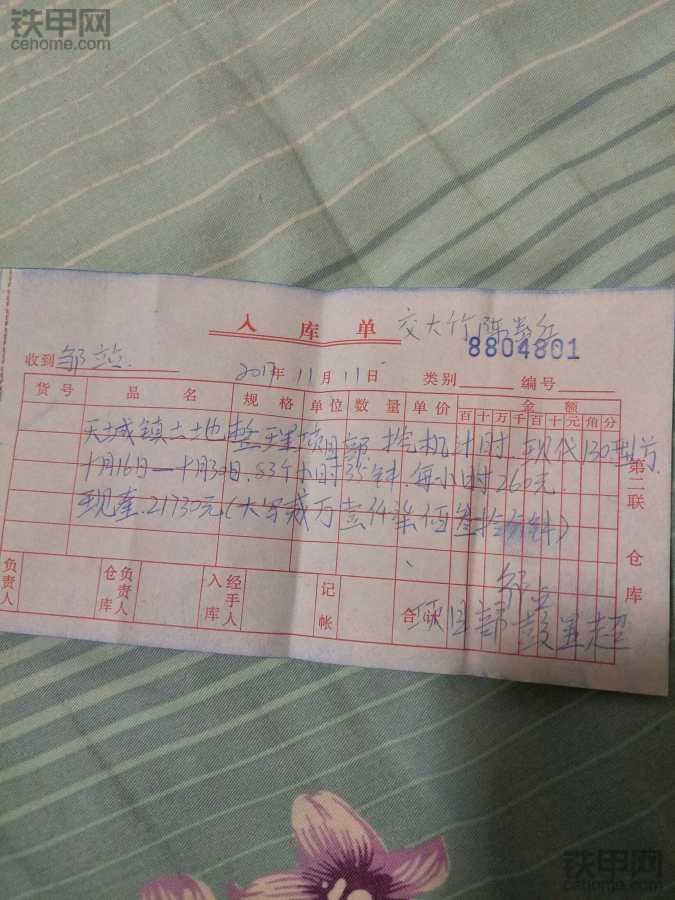 铁甲网
cehome.com
入库单 交大竹陈
8804801
收到 邹益 2017年11月11日 类别 编号
货号 品名 规格 单位 数量 单价 金额
百十万千百十元角分
天城镇土地整理项目部.挖机计时.现代130型号.
十月16日—十月30日.83个小时35分钟.每小时260元.
21730元(大写贰万壹仟柒佰叁拾
第二联 仓库
负责人 仓库负责人 入库经手人 记帐 合计
邹益
项目部
铁甲网
cehome.com